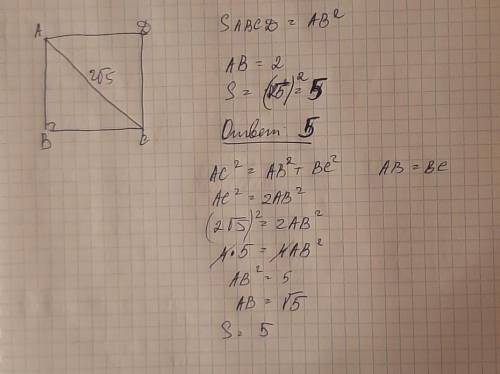 A D
2√5
B C
S ABCD = AB²
AB = 2
S = (√5)² = 5
Ответ 5
AC² = AB² + BC² AB = BC
AC² = 2AB²
(2√5)² = 2AB²
4·5 = 4AB²
AB² = 5
AB = √5
S = 5